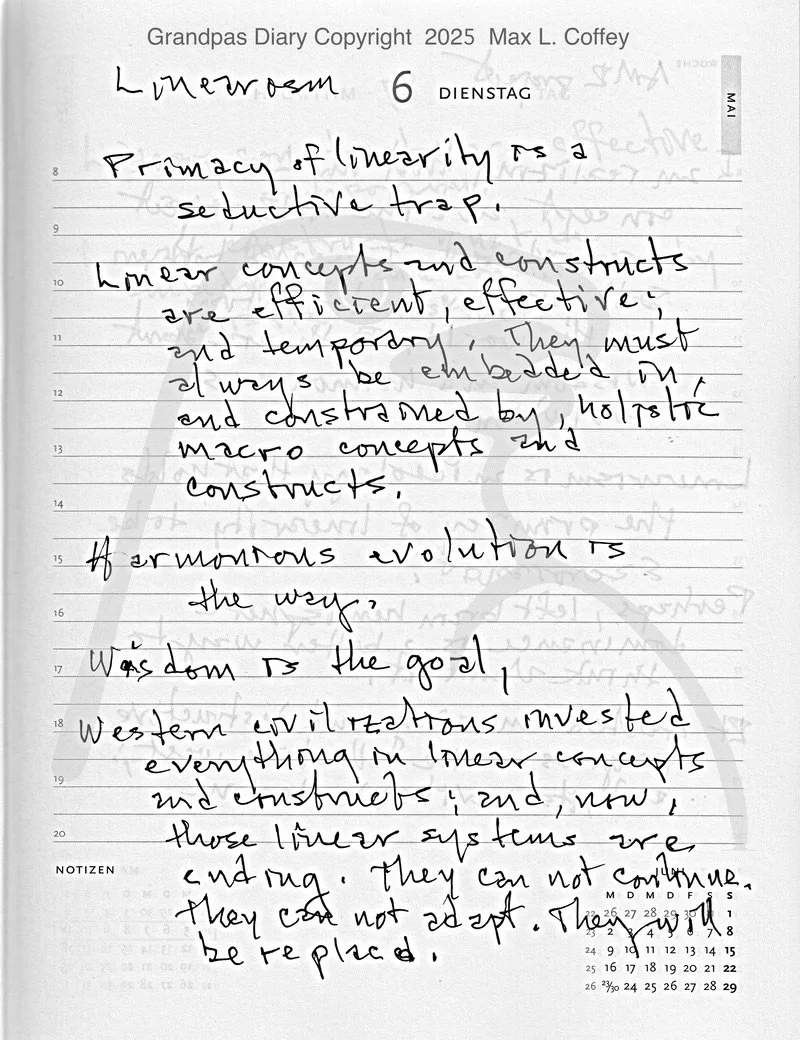 Grandpas Diary Copyright 2025 Max L. Coffey
Linearism 6 DIENSTAG
MAI
8 Primacy of linearity is a
seductive trap.
9
Linear concepts and constructs
10 are efficient, effective;
11 and temporary. They must
always be embedded in,
12 and constrained by, holistic
13 macro concepts and
constructs.
14
15 Harmonious evolution is
the way.
16
17 Wisdom is the goal,
18 Western civilizations invested
everything in linear concepts
19 and constructs; and, now,
20 those linear systems are
NOTIZEN ending. They can not continue.
They can not adapt. They will
be replaced.
M D M D F S S
22 26 27 28 29 30 1
23 2 3 4 5 6 7 8
24 9 10 11 12 13 14 15
25 16 17 18 19 20 21 22
26 23/30 24 25 26 27 28 29